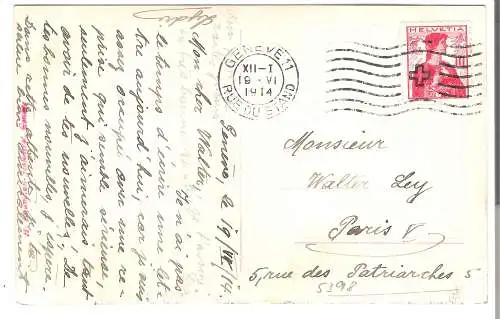 Genève, le 19/VI/14.
Mon cher Walter,
Je n'ai pas
le temps d'écrire une let-
tre aujourd'hui, car je suis
assez occupé avec une re-
prise qui semble sérieuse,
seulement j'aimerais tant
avoir de tes nouvelles. De
tes bonnes nouvelles, j'espère.
Dans cette attente, je te
salue bien
GENÈVE 11
XII-I
19 VI
1914
RUE DU STAND
HELVETIA
10
Monsieur
Walter Ley
Paris V
5, rue des Patriarches 5
5398